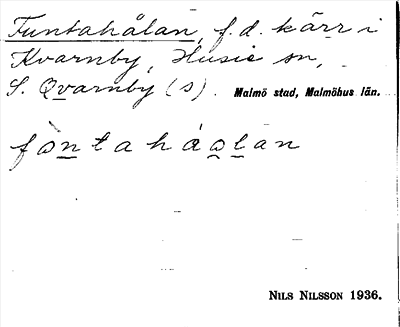 Funtahålan, f.d. kärr i
Kvarnby, Husie sn,
S. Qvarnby (s). Malmö stad, Malmöhus län.
fòntahåolan
NILS NILSSON 1936.